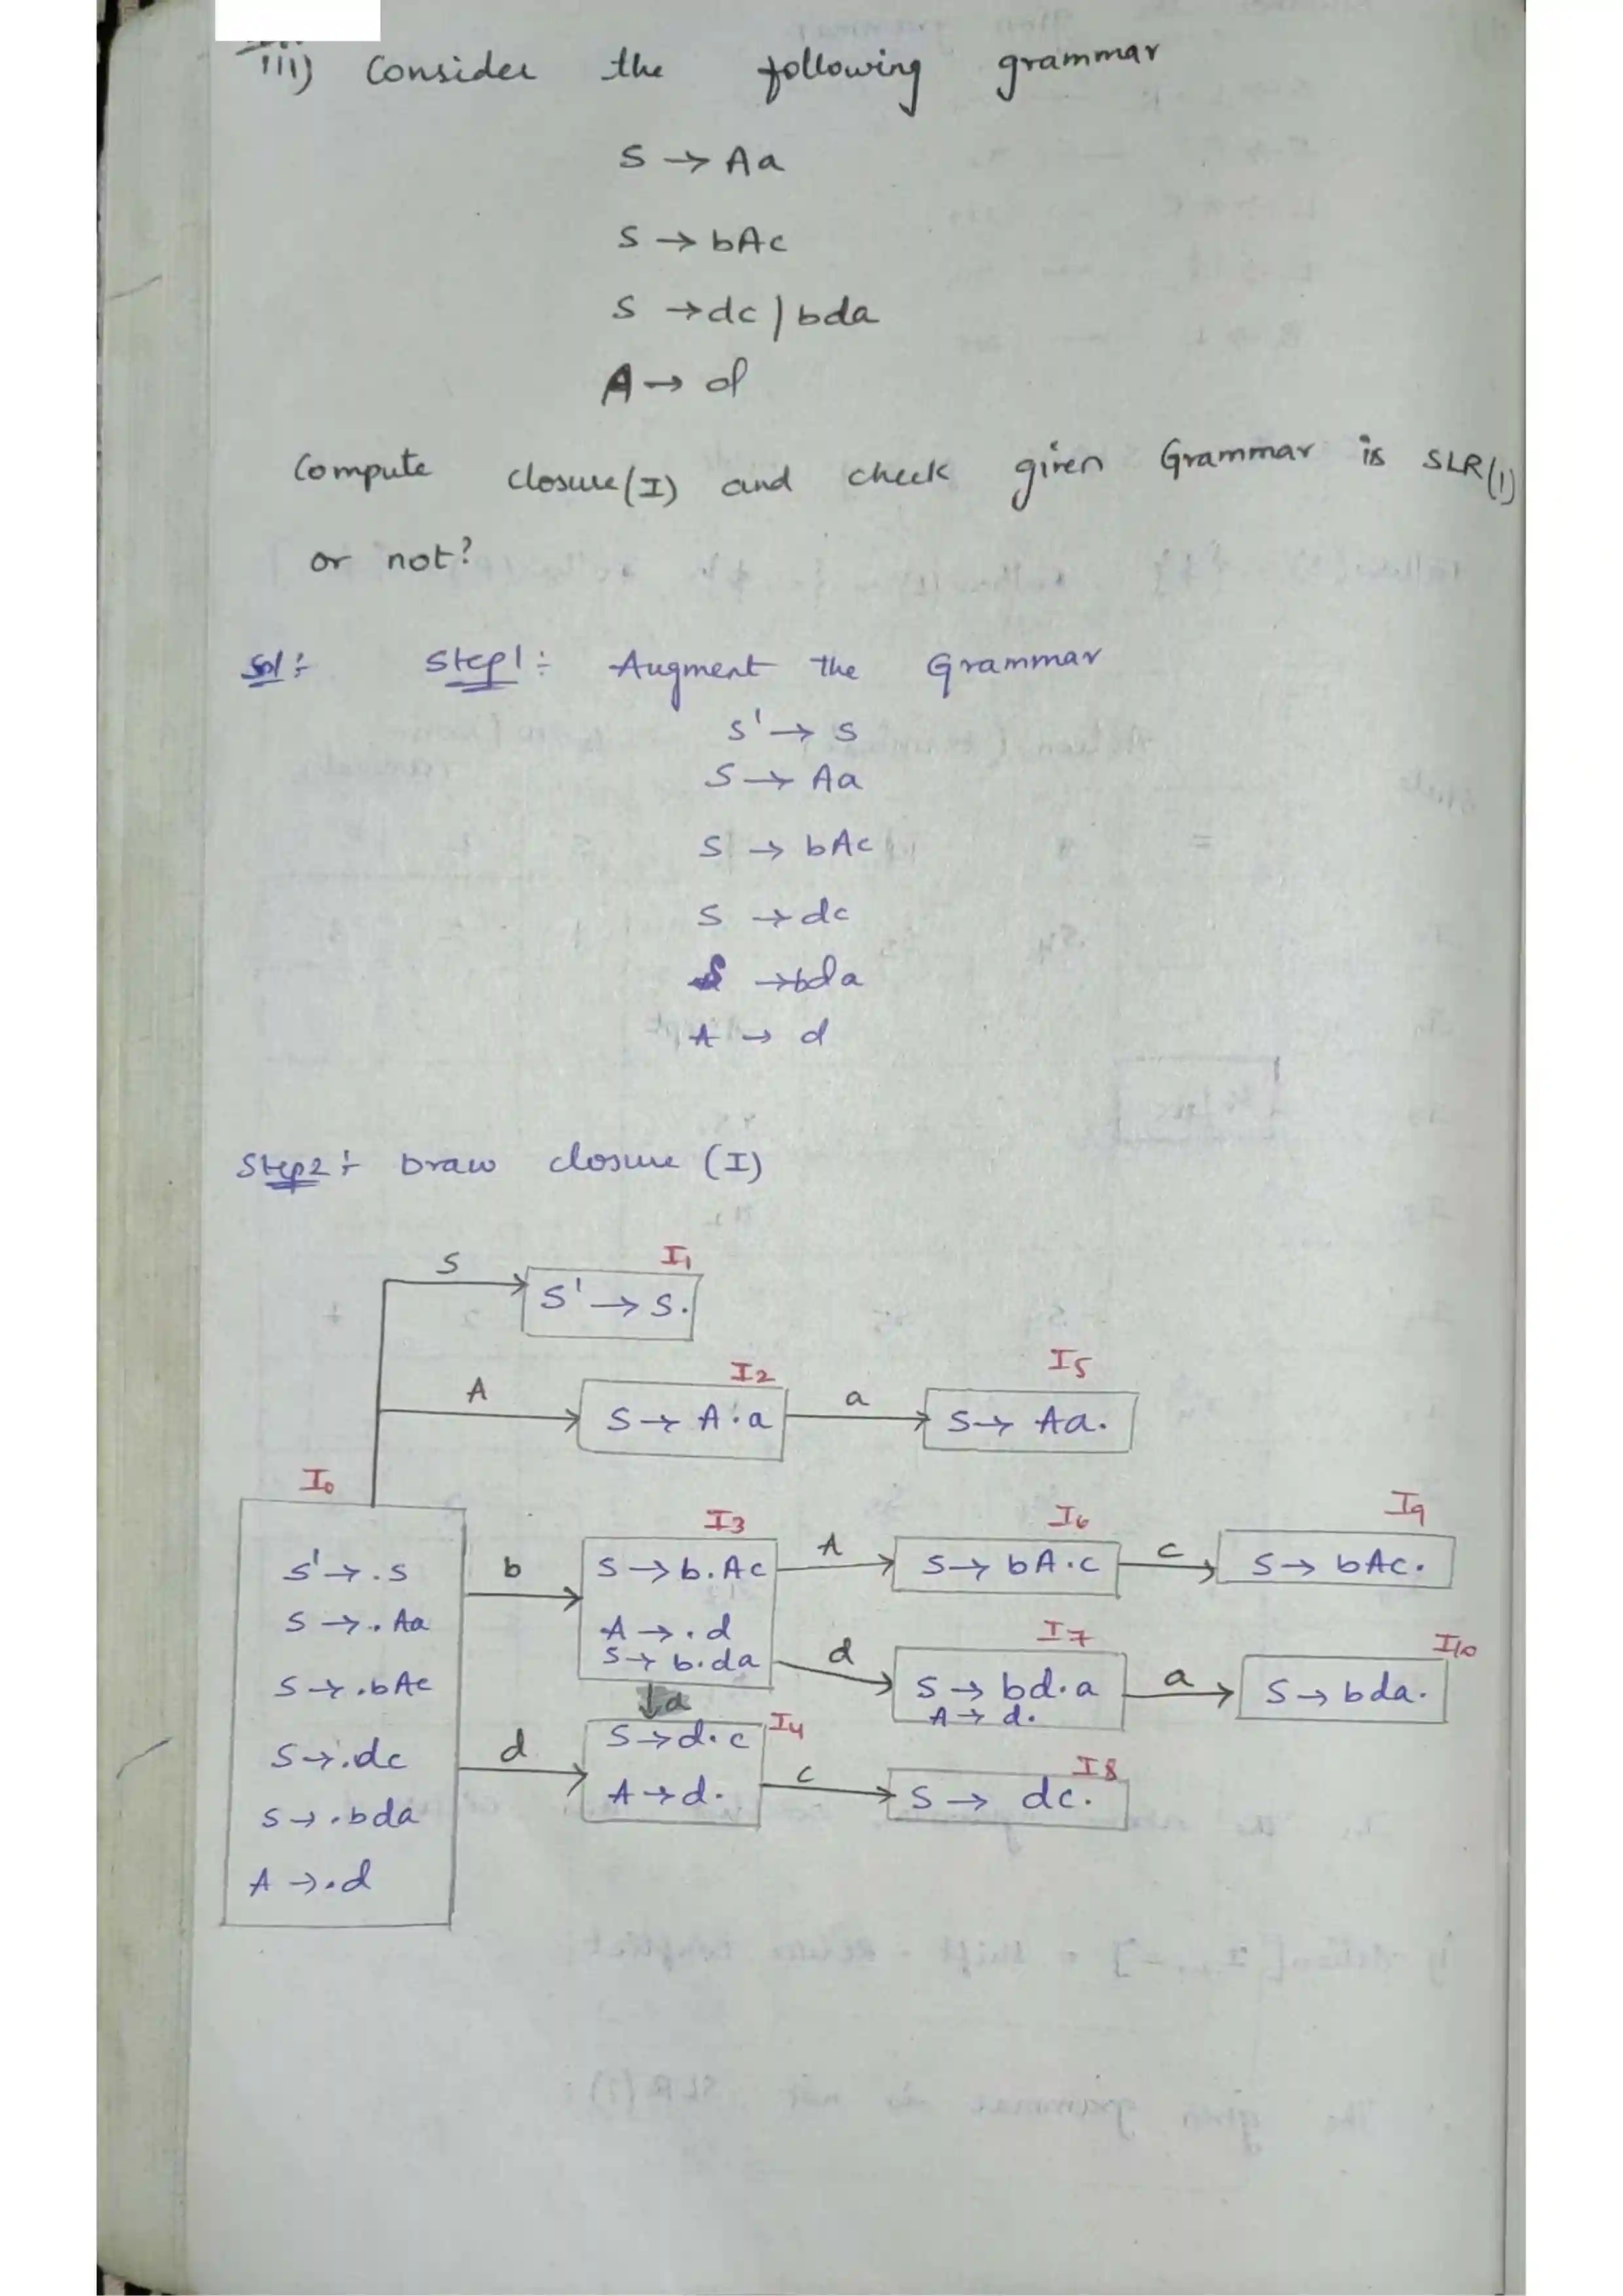 iii) Consider the following grammar
S → Aa
S → bAc
S → dc | bda
A → d
Compute closure(I) and check given Grammar is SLR(1)
or not?
Sol:- Step1:- Augment the Grammar
S' → S
S → Aa
S → bAc
S → dc
S → bda
A → d
Step2:- Draw closure (I)
S
I1
S' → S.
A
I2
S → A.a
a
I5
S → Aa.
I0
S' → .S
S → .Aa
S → .bAc
S → .dc
S → .bda
A → .d
b
I3
S → b.Ac
A → .d
S → b.da
A
I6
S → bA.c
c
I9
S → bAc.
d
I7
S → bd.a
A → d.
a
I10
S → bda.
d
I4
S → d.c
A → d.
c
I8
S → dc.